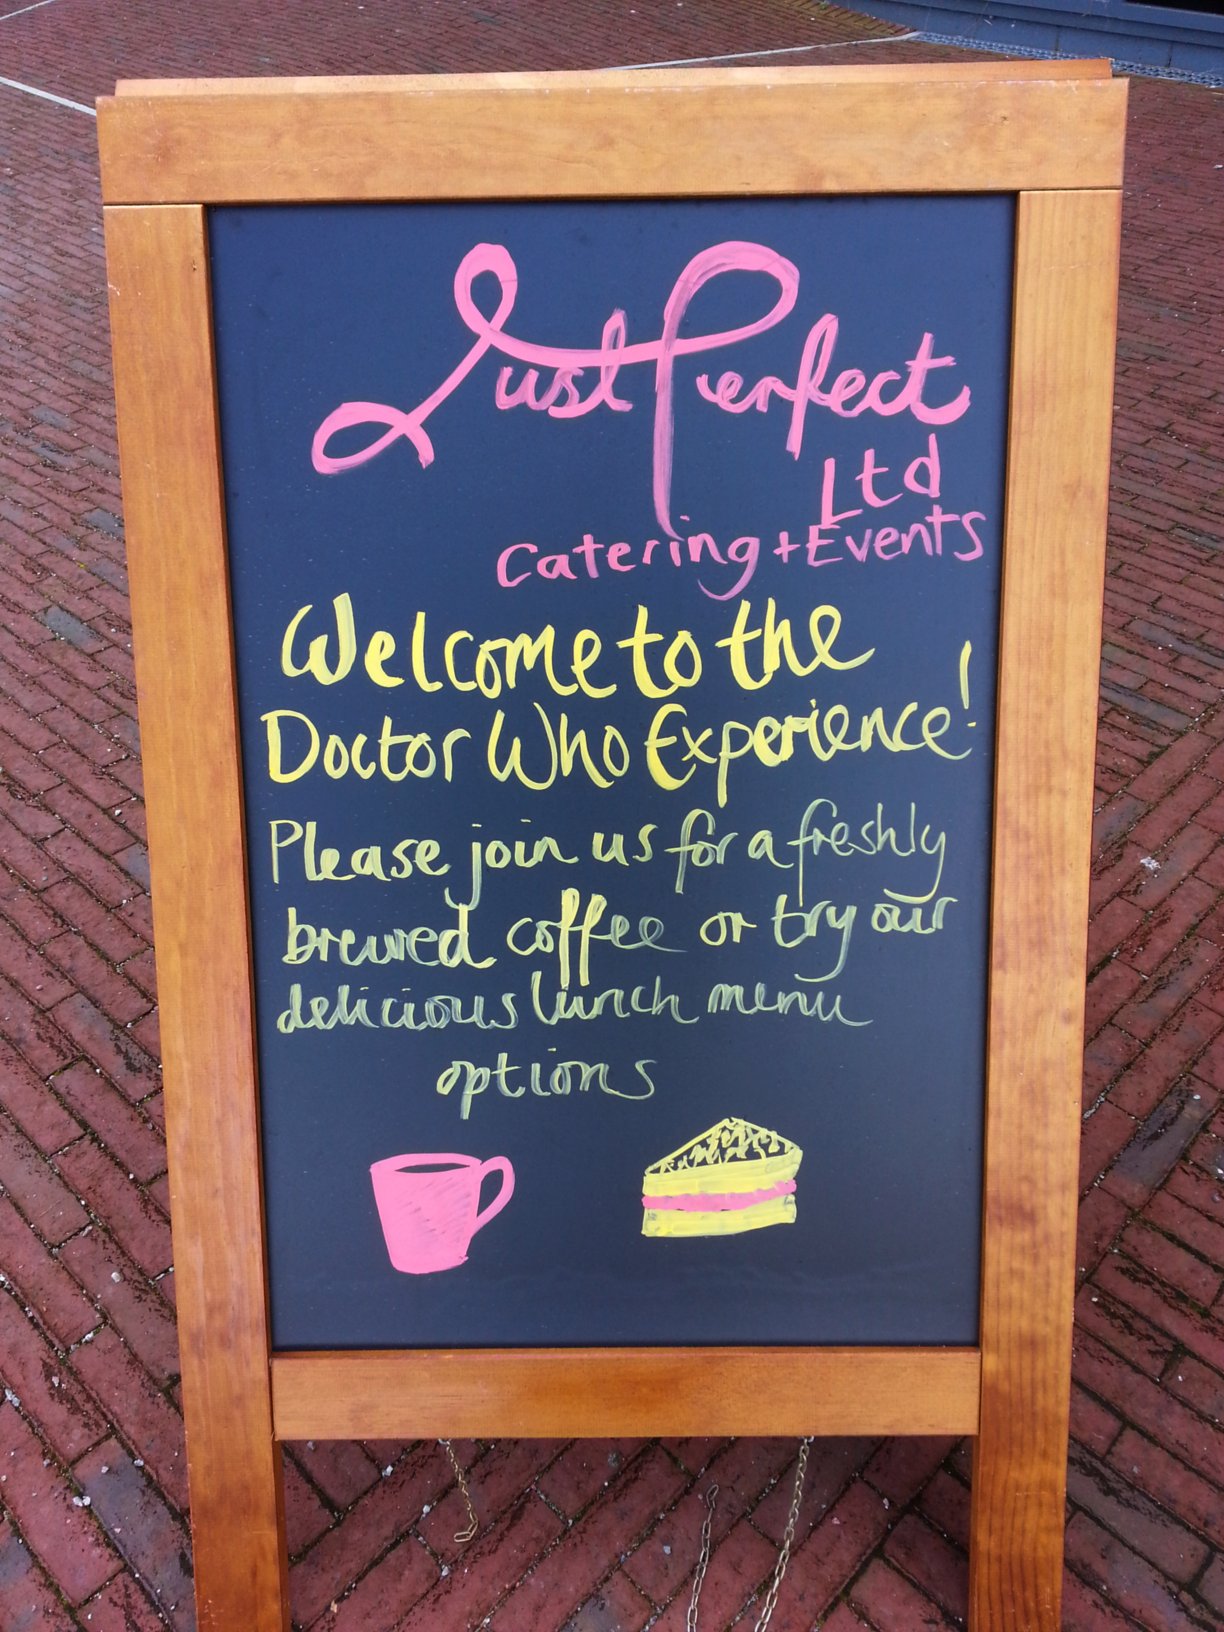 Just Perfect
Ltd
Catering + Events
Welcome to the
Doctor Who Experience!
Please join us for a freshly
brewed coffee or try our
delicious lunch menu
options